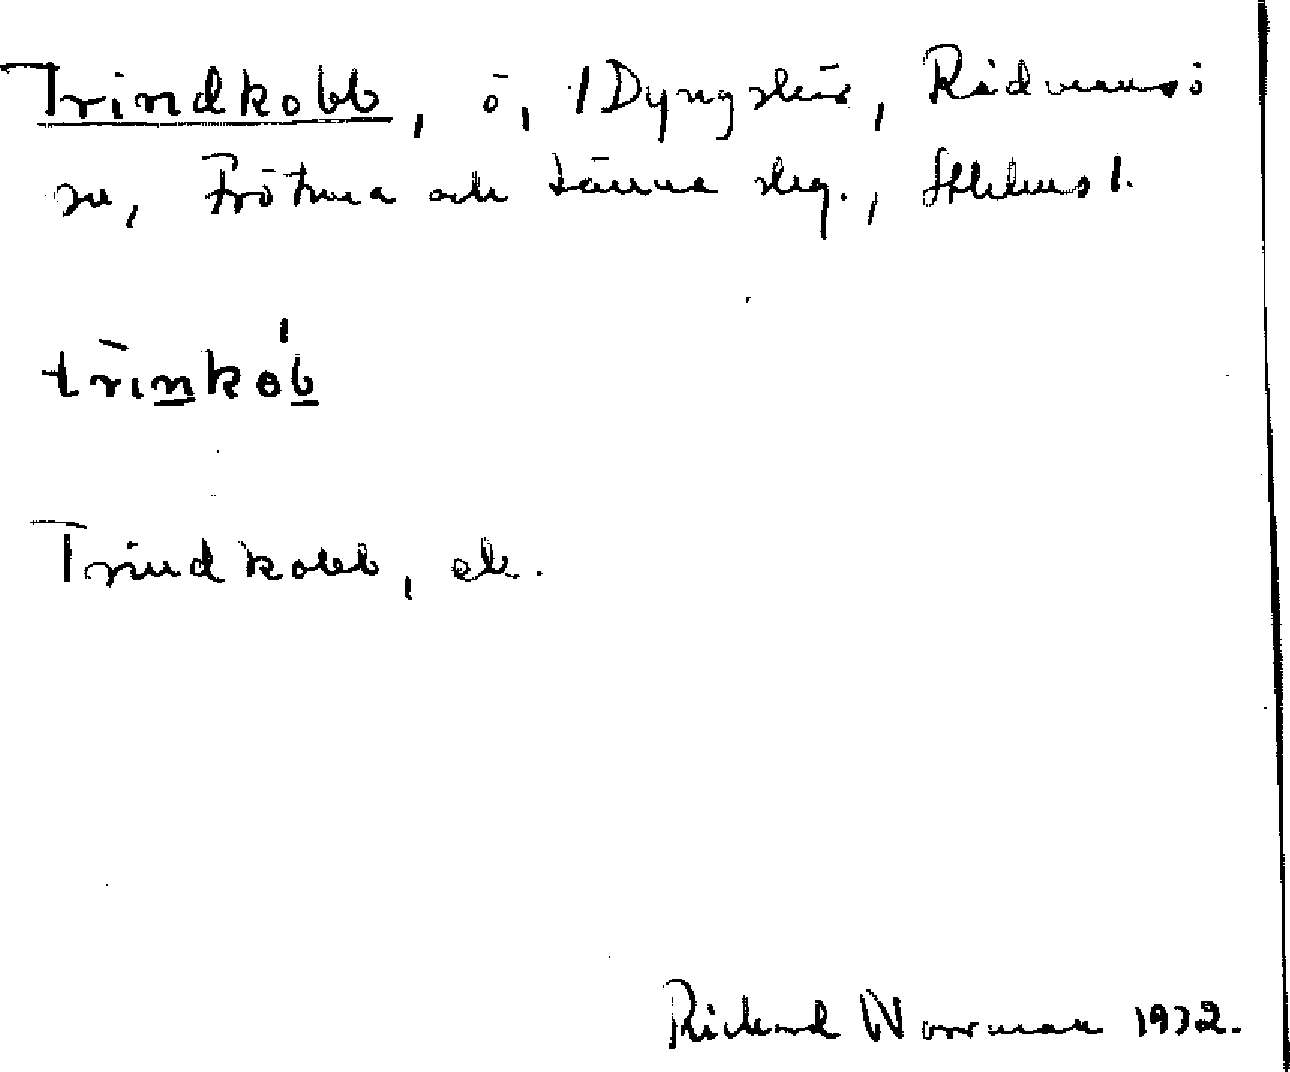 Trindkobb, ö, 1 Dyngskär, Rådmansö
sn, Frötuna och Länna skg., Sthlms l.
trinkób
Trindkobb, ek.
Rickard Norrman 1932.